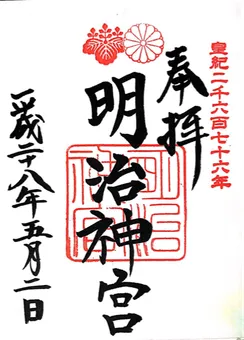 皇紀二千六百七十六年
奉拝
明治神宮
平成二十八年五月二日